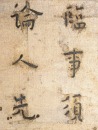 臨事須
論人先